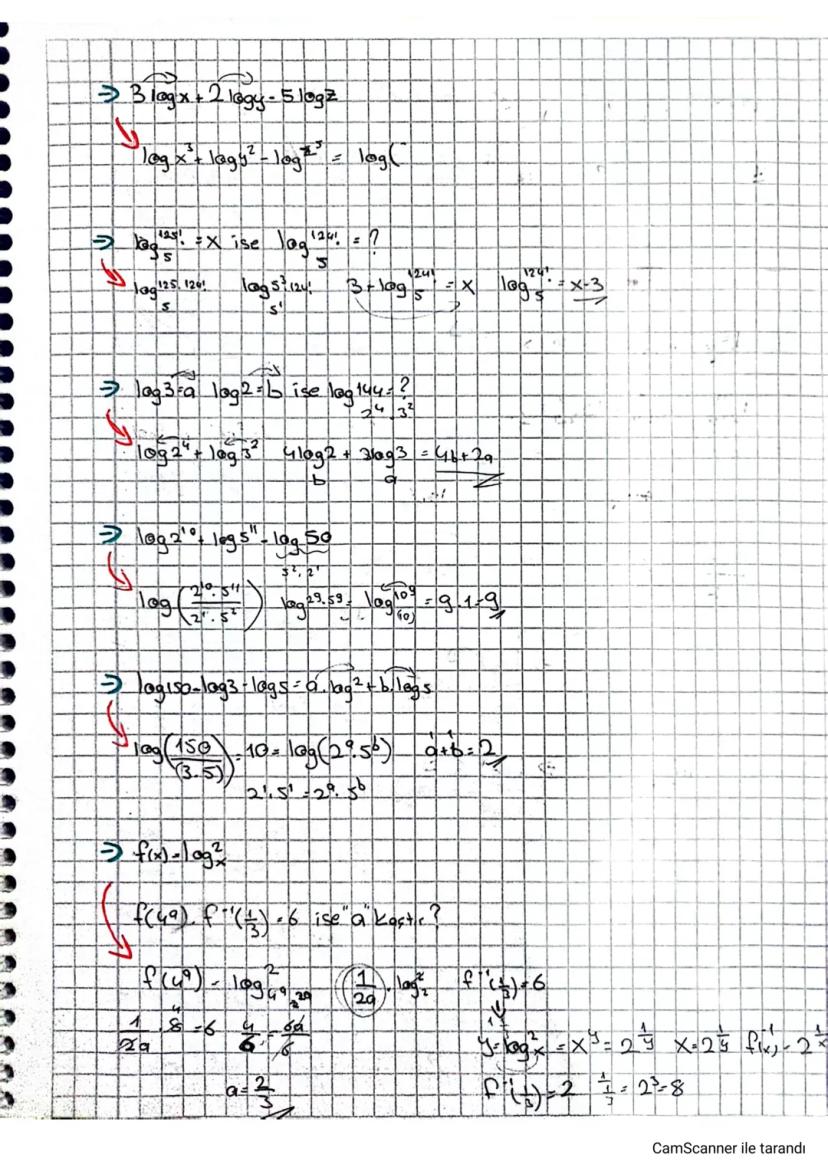 ⇒ 3logx + 2logy - 5logz
logx³ + logy² - logz⁵ = log(
⇒ log₅125! = x ise log₅124! = ?
log₅125.124! log₅5³.124! 3 + log₅124! = x log₅124! = x-3
⇒ log3=a log2=b ise log144=?
2⁴.3²
log2⁴ + log3² 4log2 + 2log3 = 4b+2a
b a
⇒ log2¹⁰ + log5¹¹ - log50
5².2¹
log(2¹⁰.5¹¹/2¹.5²) log2⁹.5⁹ = log10⁹ = 9.1=9
(10)
⇒ log150-log3-log5 = a.log2 + b.log5
log(150/(3.5)) = 10 = log(2ᵃ.5ᵇ) a+b=2
1 1
2¹.5¹ = 2ᵃ.5ᵇ
⇒ f(x) = logₓ2
f(4ᵃ).f⁻¹(1/3) = 6 ise "a" kaçtır?
f(4ᵃ) = log₄ᵃ2 2²ᵃ (1/2a).log₂2 f⁻¹(1/3)=6
1/2a . 8 = 6 4 4/6 = 6a/6 y=logₓ2 = xʸ = 2^(1/y) x=2^(1/y) f⁻¹(x) = 2^(1/x)
a = 2/3 f⁻¹(1/3) = 2^(1/(1/3)) = 2³=8
CamScanner ile tarandı